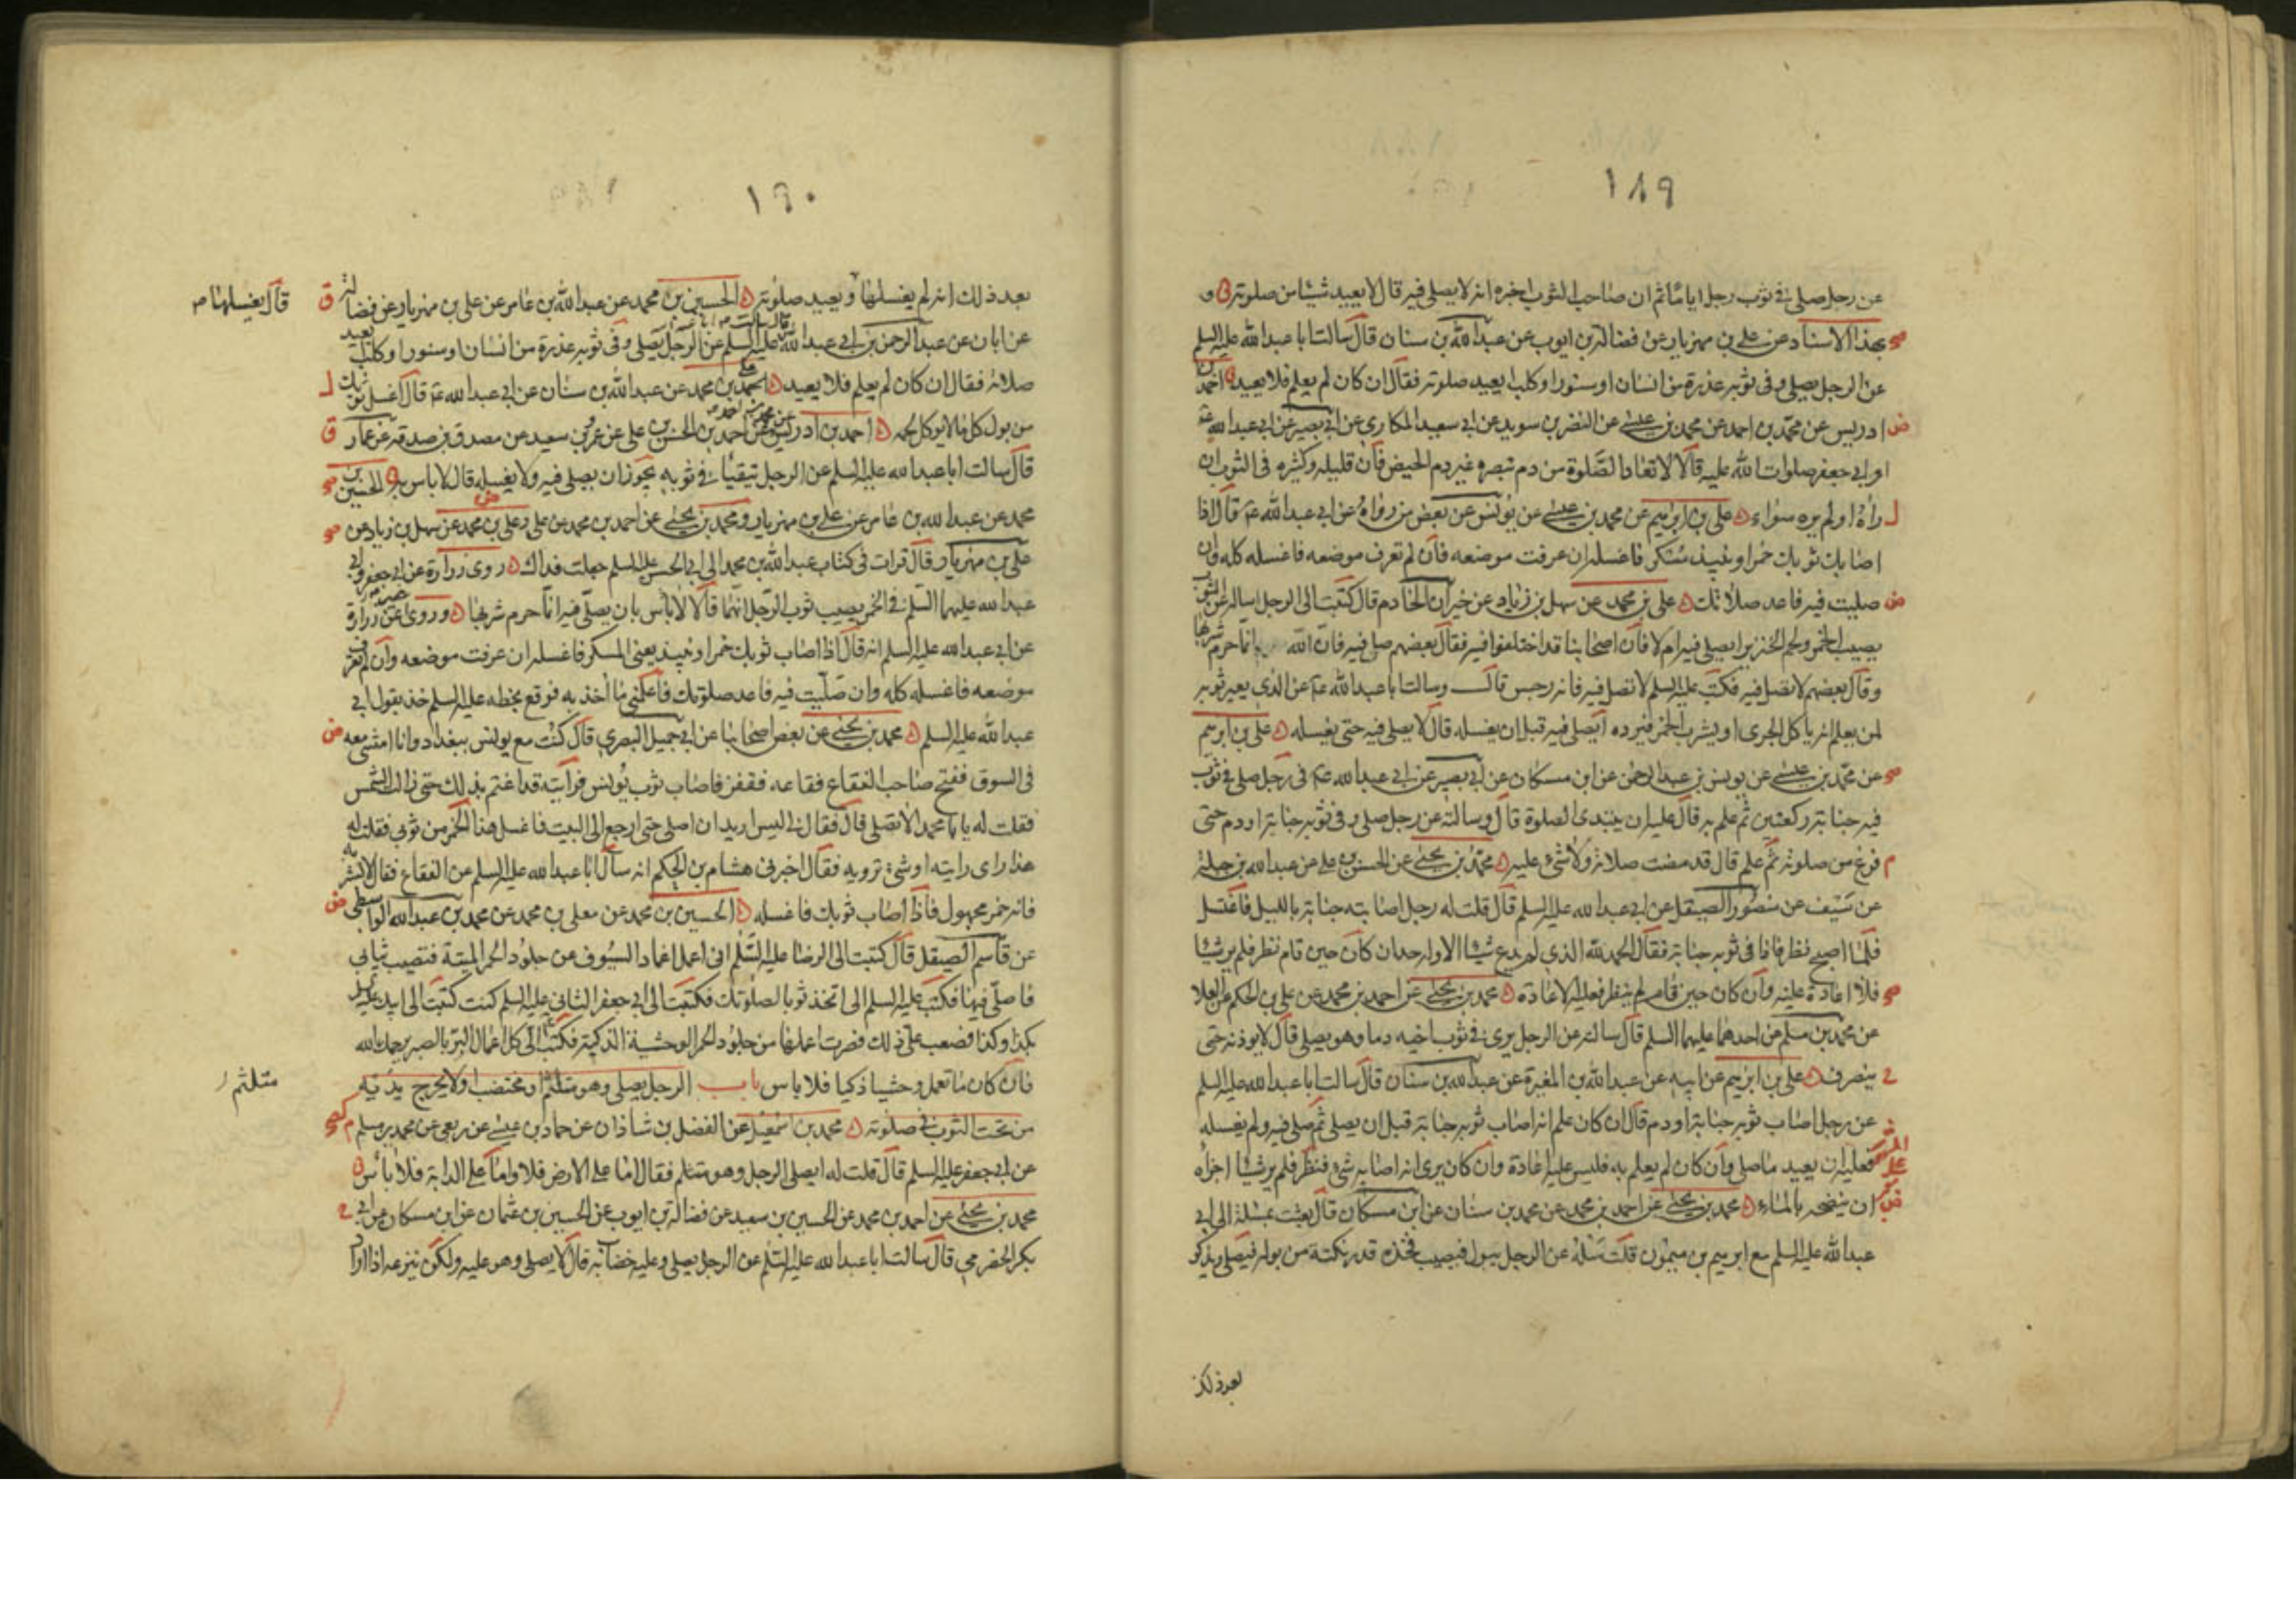 ١٨٩
عن رجل صلى في ثوب رجل اياما ثم ان صاحب الثوب اخبره انه لا يصلى فيه قال لا يعيد شيئا من صلوته و
بهذا الاسناد عن على بن مهزيار عن فضالة بن ايوب عن عبد الله بن سنان قال سالت ابا عبد الله عليه السلم
عن الرجل يصلى وفى ثوبه عذرة من انسان او سنور او كلب ايعيد صلوته فقال ان كان لم يعلم فلا يعيد احمد بن
ادريس عن محمد بن احمد عن محمد بن عيسى عن النضر بن سويد عن ابى سعيد المكارى عن ابى بصير عن ابى عبد الله
او ابى جعفر صلوات الله عليه قالا لا تعاد الصلوة من دم تبصره غير دم الحيض فان قليله وكثيره فى الثوب ان
راه او لم يره سواء على بن ابرهيم عن محمد بن عيسى عن يونس عن بعض من رواه عن ابى عبد الله ع قال اذا
اصاب ثوبك خمر او نبيذ مسكر فاغسله ان عرفت موضعه فان لم تعرف موضعه فاغسله كله وان
صليت فيه فاعد صلاتك على بن محمد عن سهل بن زياد عن خيران الخادم قال كتبت الى الرجل اساله عن الثوب
يصيب الخمر ولحم الخنزير ايصلى فيه ام لا فان اصحابنا قد اختلفوا فيه فقال بعضهم صل فيه فان الله انما حرم شربها
وقال بعضهم لا تصل فيه فكتب عليه السلم لا تصل فيه فانه رجس قال وسالت ابا عبد الله ع عن الذى يعير ثوبه
لمن يعلم انه ياكل الجرى او يشرب الخمر فيرده ايصلى فيه قبل ان يغسله قال لا يصلى فيه حتى يغسله على بن ابرهيم
عن محمد بن عيسى عن يونس بن عبد الرحمن عن ابن مسكان عن ابى بصير عن ابى عبد الله ع فى رجل صلى فى ثوب
فيه جنابة ركعتين ثم علم به قال عليه ان يبتدى الصلوة قال وسالته عن رجل صلى وفى ثوبه جنابة او دم حتى
فرغ من صلوته ثم علم قال قد مضت صلاته ولا شىء عليه محمد بن يحيى عن الحسن بن على عن عبد الله بن جبلة
عن سيف عن منصور الصيقل عن ابى عبد الله عليه السلم قال قلت له رجل اصابته جنابة بالليل فاغتسل
فلما اصبح نظر فاذا فى ثوبه جنابة فقال الحمد لله الذى لم يدع شيئا الا وله حد ان كان حين قام نظر فلم ير شيئا
فلا اعادة عليه وان كان حين قام لم ينظر فعليه الاعادة محمد بن يحيى عن احمد بن محمد عن على بن الحكم عن العلا
عن محمد بن مسلم عن احدهما عليهما السلم قال سالته عن الرجل يرى فى ثوب اخيه دما وهو يصلى قال لا يوذنه حتى
ينصرف على بن ابرهيم عن ابيه عن عبد الله بن المغيرة عن عبد الله بن سنان قال سالت ابا عبد الله عليه السلم
عن رجل اصاب ثوبه جنابة او دم قال ان كان علم انه اصاب ثوبه جنابة قبل ان يصلى ثم صلى فيه ولم يغسله
فعليه ان يعيد ما صلى وان كان لم يعلم به فليس عليه اعادة وان كان يرى انه اصابه شىء فنظر فلم ير شيئا اجزاه
ان ينضحه بالماء محمد بن يحيى عن احمد بن محمد عن محمد بن سنان عن ابن مسكان قال بعثت بمسئلة الى ابى
عبد الله عليه السلم مع ابرهيم بن ميمون قلت سله عن الرجل يبول فيصيب فخذه قدر نكتة من بوله فيصلى ويذكر
بعد ذلك
١٩٠
بعد ذلك انه لم يغسلها ويعيد صلوته الحسين بن محمد عن عبد الله بن عامر عن على بن مهزيار عن فضالة
قال يغسلها م
عن ابان عن عبد الرحمن بن ابى عبد الله عليه السلم عن الرجل يصلى وفى ثوبه عذرة من انسان او سنور او كلب ايعيد
صلاته فقال ان كان لم يعلم فلا يعيد محمد عن عبد الله بن سنان عن ابى عبد الله ع قال اغسل ثوبك
من بول كل ما لا يوكل لحمه احمد بن ادريس عن احمد بن الحسن بن على عن عمرو بن سعيد عن مصدق بن صدقة عن عمار
قال سالت ابا عبد الله عليه السلم عن الرجل يتقيا فى ثوبه يجوز ان يصلى فيه ولا يغسله قال لا باس به الحسين بن
محمد عن عبد الله بن عامر عن على بن مهزيار ومحمد بن يحيى عن احمد بن محمد عن على وعلى بن محمد عن سهل بن زياد عن
على بن مهزيار قال قرات فى كتاب عبد الله بن محمد الى ابى الحسن عليه السلم جعلت فداك روى زرارة عن ابى جعفر وابى
عبد الله عليهما السلم فى الخمر يصيب ثوب الرجل انهما قالا لا باس بان يصلى فيه انما حرم شربها وروى عن زرارة
عن ابى عبد الله عليه السلم انه قال اذا اصاب ثوبك خمر او نبيذ يعنى المسكر فاغسله ان عرفت موضعه وان لم تعرف
موضعه فاغسله كله وان صليت فيه فاعد صلوتك فاعلمنى ما اخذ به فوقع بخطه عليه السلم خذ بقول ابى
عبد الله عليه السلم محمد بن يحيى عن بعض اصحابنا عن ابى جميل البصرى قال كنت مع يونس ببغداد وانا امشى معه
فى السوق ففتح صاحب الفقاع فقاعه فقفز فاصاب ثوب يونس فرايته قد اغتم بذلك حتى زالت الشمس
فقلت له يا با محمد الا تصلى قال فقال لى ليس اريد ان اصلى حتى ارجع الى البيت فاغسل هذا الخمر من ثوبى فقلت له
هذا راى رايته او شىء ترويه فقال اخبرنى هشام بن الحكم انه سال ابا عبد الله عليه السلم عن الفقاع فقال لا تشربه
فانه خمر مجهول فاذا اصاب ثوبك فاغسله الحسين بن محمد عن معلى بن محمد عن محمد بن عبد الله الواسطى
عن قاسم الصيقل قال كتبت الى الرضا عليه السلم انى اعمل اغماد السيوف من جلود الحمر الميتة فتصيب ثيابى
فاصلى فيها فكتب عليه السلم الى اتخذ ثوبا لصلوتك فكتبت الى ابى جعفر الثانى عليه السلم كنت كتبت الى ابيك
بكذا وكذا فصعب على ذلك فصرت اعملها من جلود الحمر الوحشية الذكية فكتب الى كل اعمال البر بالصبر يرحمك الله
فان كان ما تعمل وحشيا ذكيا فلا باس باب الرجل يصلى وهو متلثم او مختضب او لا يخرج يديه
متلثم
من تحت الثوب فى صلوته محمد بن اسمعيل عن الفضل بن شاذان عن حماد بن عيسى عن ربعى عن محمد بن مسلم
عن ابى جعفر عليه السلم قال قلت له ايصلى الرجل وهو متلثم فقال اما على الارض فلا واما على الدابة فلا باس
محمد بن يحيى عن احمد بن محمد عن الحسين بن سعيد عن فضالة بن ايوب عن الحسين بن عثمان عن ابن مسكان عن ابى
بكر الحضرمى قال سالت ابا عبد الله عليه السلم عن الرجل يصلى وعليه خضابه قال لا يصلى وهو عليه ولكن ينزعه اذا اراد